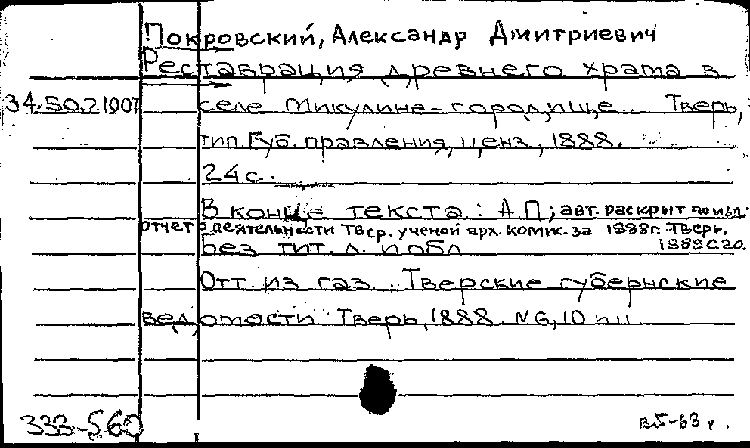 Покровский, Александр Дмитриевич
Реставрация древнего храма в
34.50.2/907 селе Микулине-городище. Тверь,
тип. Губ. правления, ценз., 1888.
24 с.
В конце текста: А.П; авт. раскрыт по изд.
отчет о деятельности Твер. ученой арх. комис. за 1888г. Тверь,
1889 с 20.
без тит. л. и обл
Отт из газ. Тверские губернские
ведомости Тверь, 1888. №6, 10
333-560
В5-63 г.